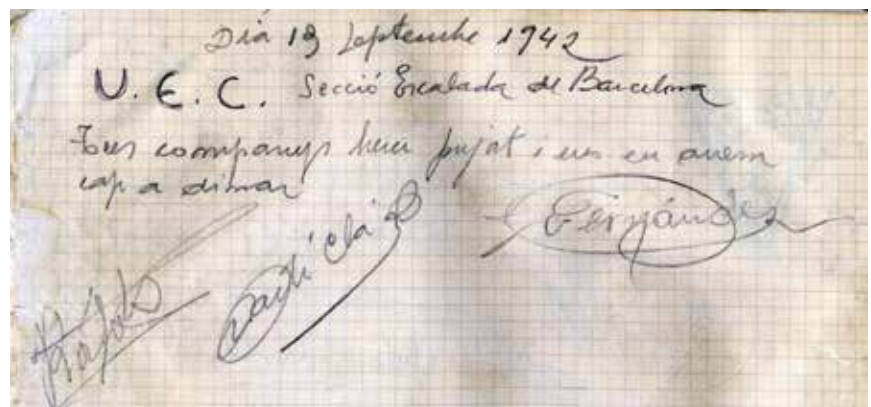 Dia 19 Septembre 1942
U. E. C. Secció Escalada de Barcelona
Tres companys hem pujat i ens en anem
cap a dinar
Fernández